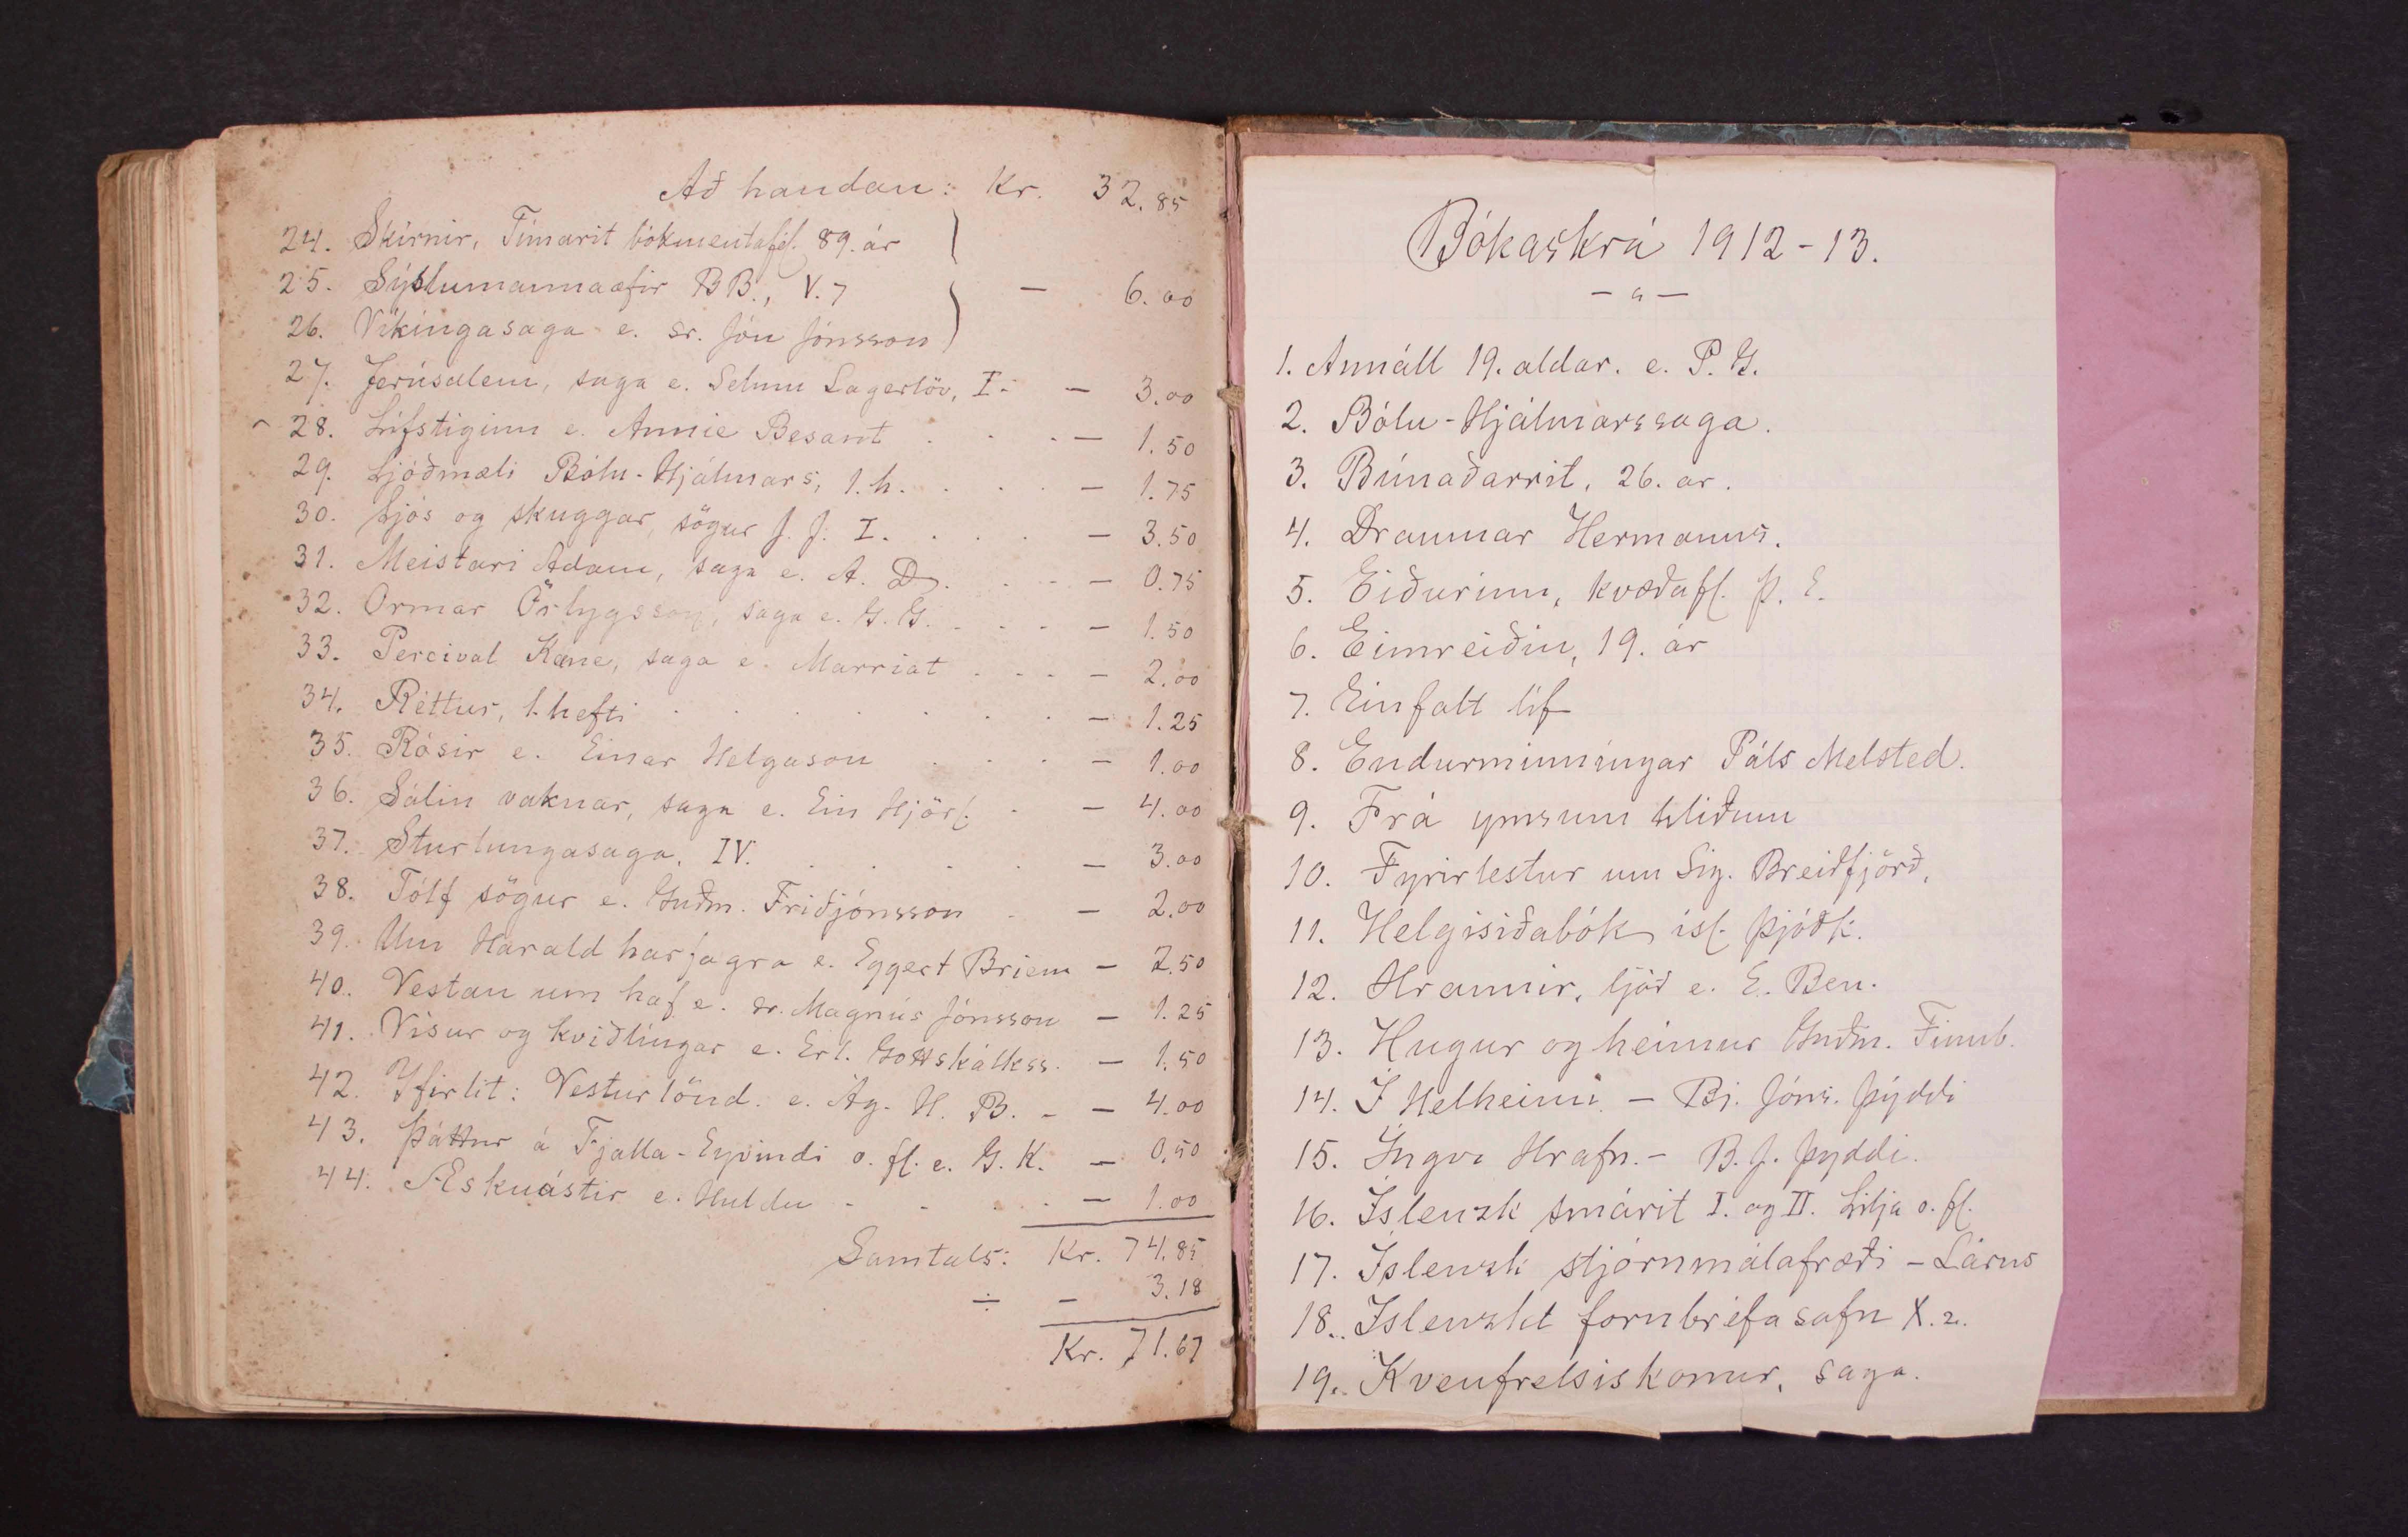 Að handan: Kr. 32.85
24. Skírnir, Tímarit bókmentafjel. 89. ár
25. Sýslumannaæfir BB., V.7 — 6.00
26. Víkingasaga e. sr. Jón Jónsson
27. Jerúsalem, saga e. Selmu Lagerlöv, I. — 3.00
28. Lífstiginn e. Annie Besant . . . — 1.50
29. Ljóðmæli Bólu-Hjálmars, 1. h. . . . — 1.75
30. Ljós og skuggar, sögur J. J. I. . . . . — 3.50
31. Meistari Adam, saga e. A. D. . . — 0.75
32. Ormar Örlygsson, saga e. G. G. . . . — 1.50
33. Percival Kene, saga e. Marriat . . . — 2.00
34. Réttur, 1. hefti . . . . . . . — 1.25
35. Rósir e. Einar Helgason . . . — 1.00
36. Sálin vaknar, saga e. Ein Hjörl. . — 4.00
37. Sturlungasaga, IV. . . . . — 3.00
38. Tólf sögur e. Guðm. Friðjónsson . — 2.00
39. Um Harald hárfagra e. Eggert Briem — 2.50
40. Vestan um haf e. sr. Magnús Jónsson — 1.25
41. Vísur og kviðlingar e. Erl. Gottskálkss. — 1.50
42. Yfirlit: Vesturlönd. e. Ág. H. B. - — 4.00
43. Þáttur á Fjalla-Eyvindi o. fl. e. G. K. — 0.50
44. Æskuástir e. Huldu - - . . — 1.00
Samtals: Kr. 74.85
÷ — 3.18
Kr. 71.67
Bókaskrá 1912-13.
— „ —
1. Annáll 19. aldar. e. P. G.
2. Bólu-Hjálmarssaga.
3. Búnaðarrit, 26. ar.
4. Draumar Hermanns.
5. Eiðurinn, kvæðafl. Þ. E.
6. Eimreiðin, 19. ár
7. Einfalt líf
8. Endurminningar Páls Melsted.
9. Frá ymsum hliðum
10. Fyrirlestur um Sig. Breiðfjörð.
11. Helgisiðabók ísl. þjóðk.
12. Hrannir, ljóð e. E. Ben.
13. Hugur og heimur Guðm. Finnb.
14. Í Helheimi — Bj. Jóns. þýddi
15. Yngvi Hrafn. — B. J. þyddi.
16. Íslenzk smárit I. og II. Lilja o. fl.
17. Íslenzk stjórnmálafræði — Lárus
18. Íslenzkt fornbréfasafn X. 2.
19. Kvenfrelsiskonur, saga.